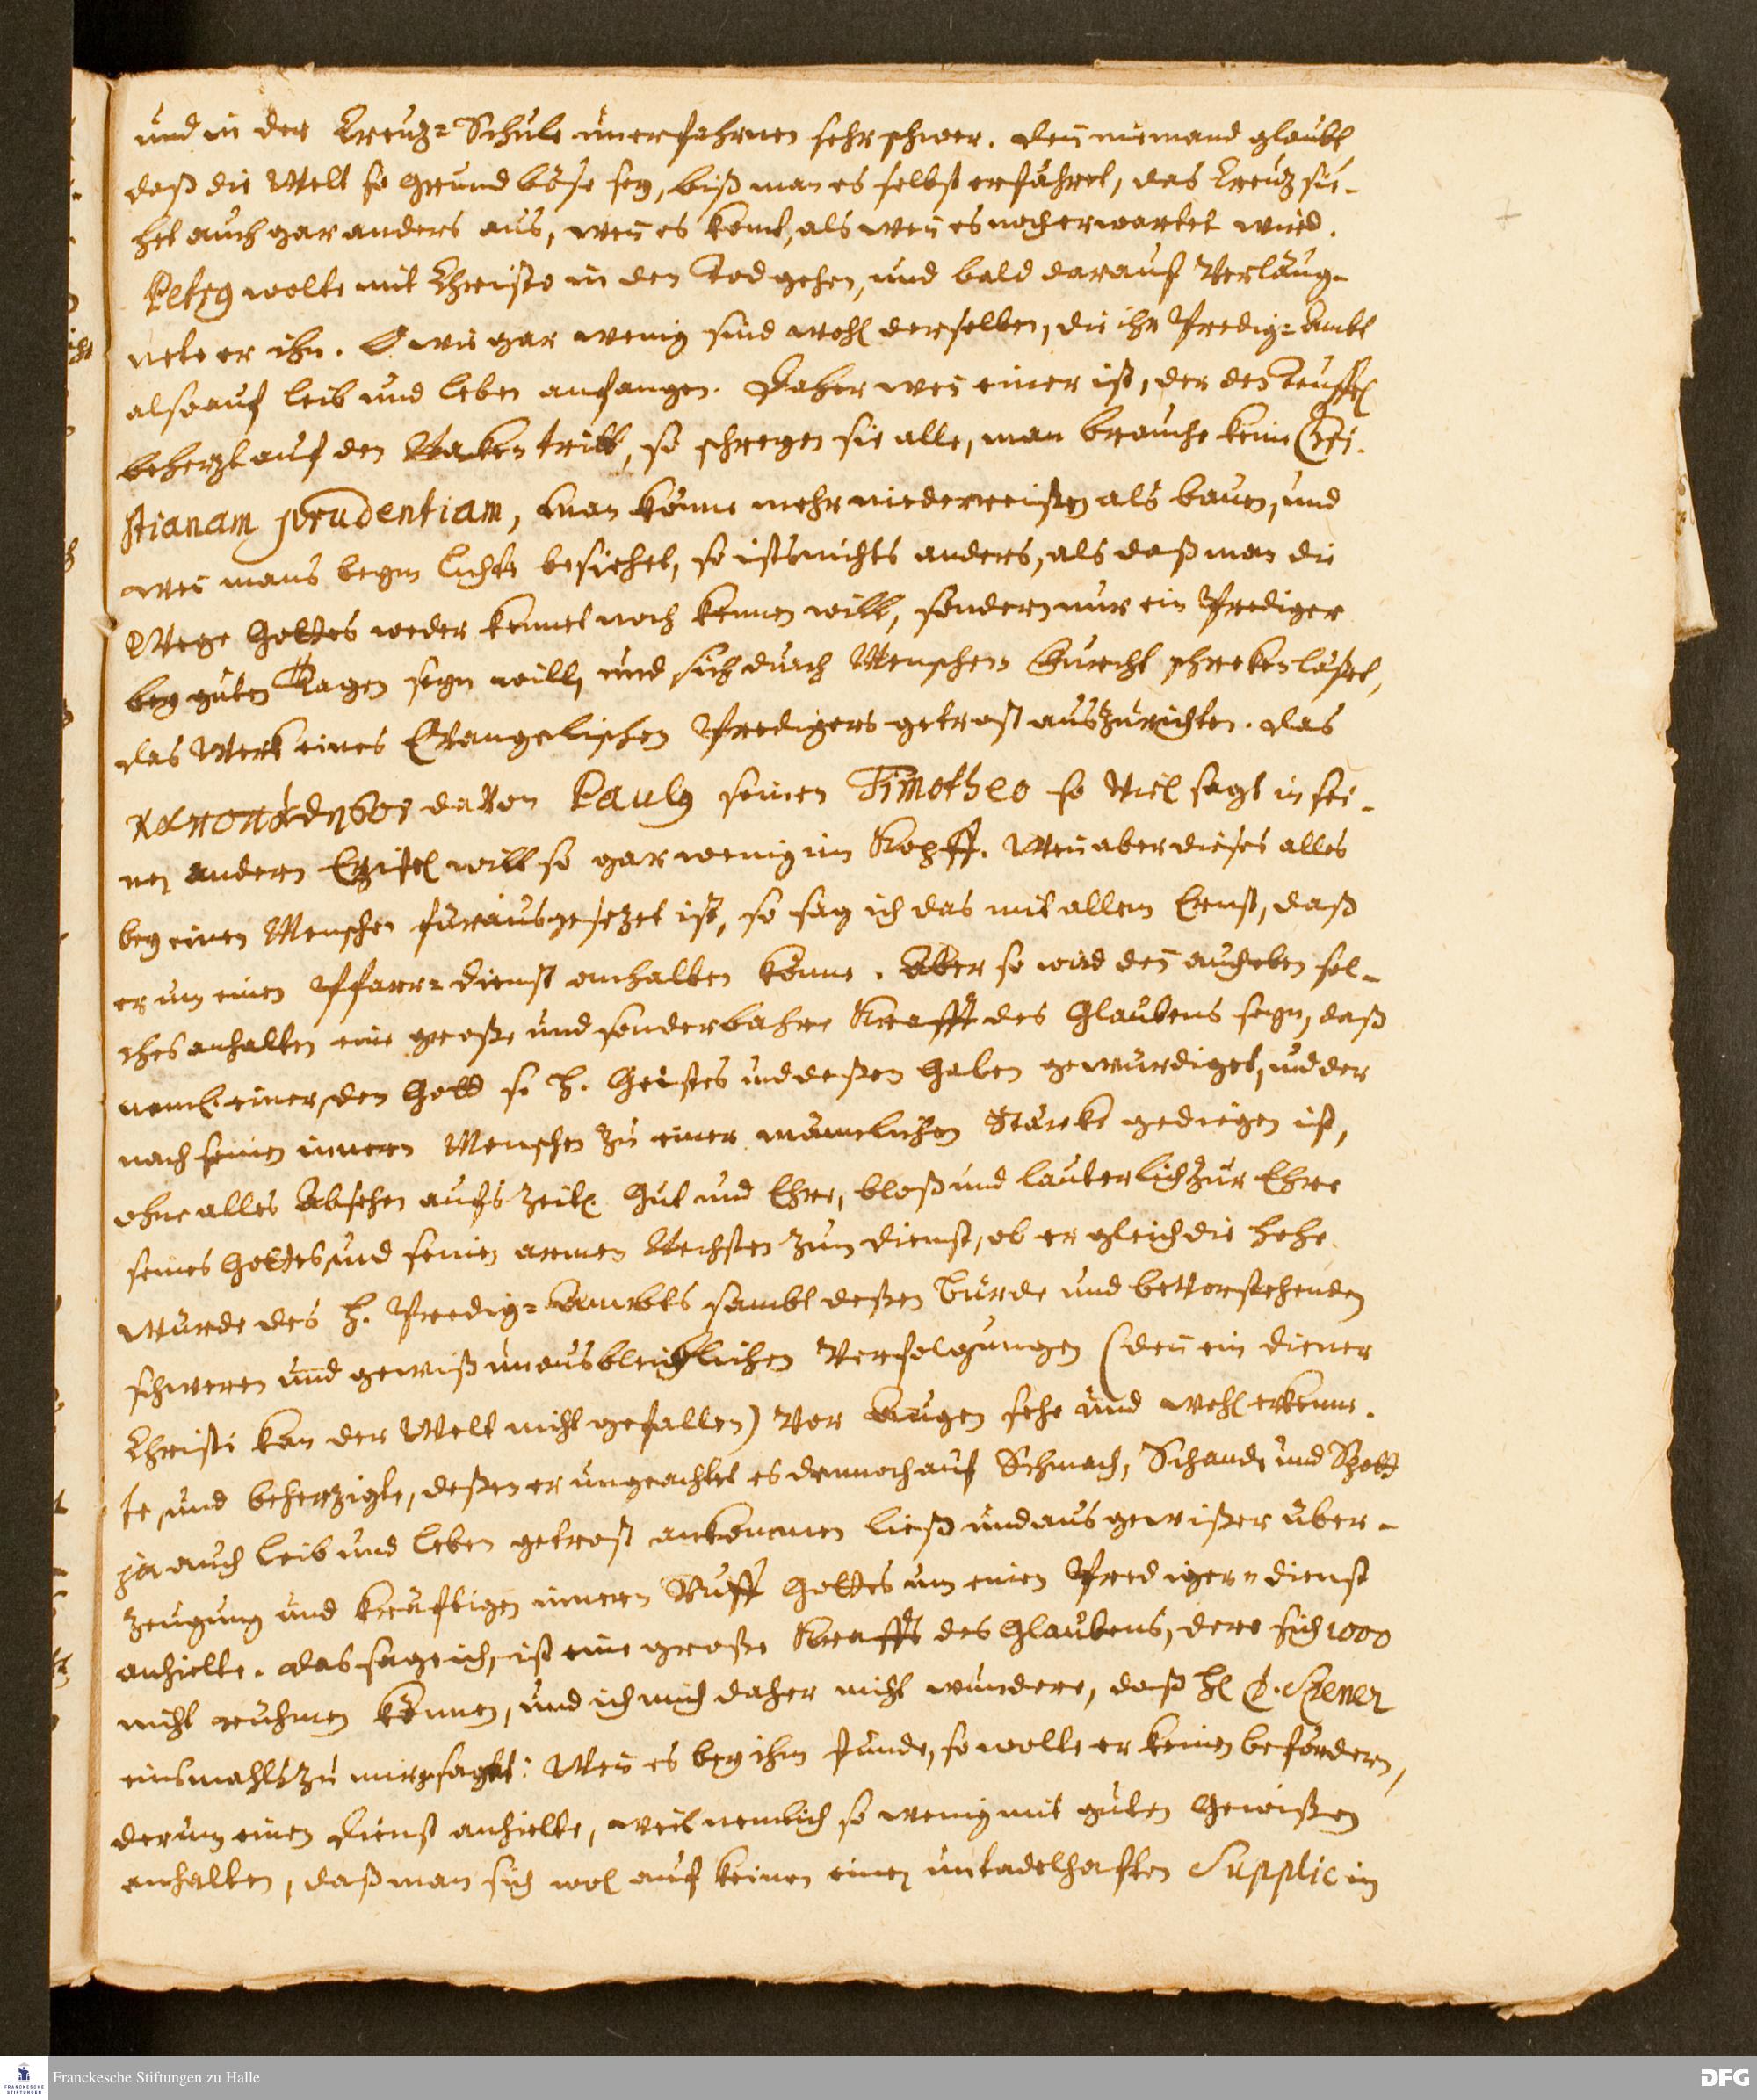 und in der Creuz=Schule unerfahrnen sehr schwer. deñ niemand glaubt
daß die Welt so grund böse sey, biß man es selbst erfähret, das Creuz sie-
het auch gar anders aus, weñ es komt, als weñ es noch erwartet wird.
Petrg wolte mit Christo in den Tod gehen, und bald darauf verläug-
nete er ihn. O wie gar wenig sind wohl derselben, die ihr Predig=Ambt
also auf leib und leben anfangen. Daher weñ einer ist, der deñ teuffel
beherzt auf den Nacken tritt, so schreyen sie alle, man brauche keine Chri-
stianam prudentiam, man könne mehr niederreißen als bauen, und
weñ mans beym lichte besiehet, so ists nichts anders, als daß man die
Wege Gottes weder kennet noch kennen will, sondern nur ein Prediger
bey guten Tagen seyn will, und sich durch Menschen Furcht schrecken läßet,
das Werk eines Evangelischen Predigers getrost auszurichten. das
κακοπάθησον davon Paulg seinen Timotheo so viel sagt in sei-
nen andern Epistel will so gar wenig im Kopff. Weñ aber dieses alles
bey einen Menschen fürausgesezet ist, so sag ich das mit allem Ernst, daß
er um einen Pfarr=dienst anhalten könne. Aber so wird deñ auch eben sol-
ches anhalten eine große und sonderbahre Krafft des Glaubens seyn, daß
neml. einer, den Gott s. H. Geistes und deßen Gaben gewürdiget, und der
nach seinen innern Menschen zu einer mänlichen Stärcke gediegen ist,
ohne alles Absehen aufs zeitl. Gut und Ehre, bloß und lauterlich zur Ehre
seines Gottes, und seinen armen Nechsten zum dienst, ob er gleich die hohe
würde des H. Predig=Ambts sambt deßen bürde und bevorstehenden
schweren und gewiß unausbleiblichen Verfolgungen (deñ ein diener
Christi kan der Welt nicht gefallen) vor Augen sehe und wohl erkenne-
te, und beherzigte, deßen er ungeachtet es dennoch auf Schmach, Schande und Spott
ja auch leib und leben getrost ankommen ließ und aus gewißer über-
zeugung und kräftigen innern Ruff Gottes um einen Prediger=dienst
anhielte. das sage ich, ist eine große Krafft des Glaubens, dere sich 1000
nicht rühmen können, und ich mich daher nicht wundere, daß H. D. Spener
einsmahls zu mir sagte: Weñ es bey ihm stunde, so wolte er keinen befördern,
der um einen dienst anhielte, weil nemlich so wenig mit guten Gewißen
anhalten, daß man sich wol auf keinen einen untadelhafften Supplic in
Franckesche Stiftungen zu Halle
FRANCKESCHE
STIFTUNGEN
DFG